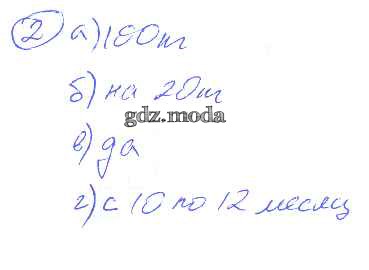 2 а) 100т
б) на 20т
gdz.moda
в) да
г) с 10 по 12 месяц